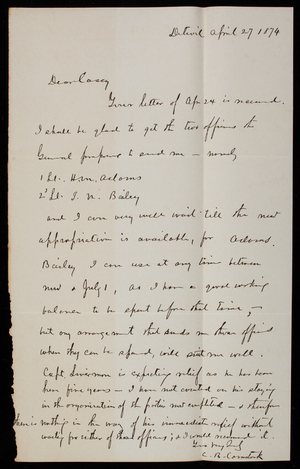 Detroit April 27 1874
Dear Casey
Your letter of Apr 24 is received.
I shall be glad to get the two officers the
General proposes to send me – namely
1 Lt. Hen. Adams
2' Lt. T. N. Bailey
and I can very well wait till the new
appropriation is available, for Adams.
Bailey I can use at any time between
now & July 1, as I have a good working
balance to be spent before that time, –
but any arrangement that sends me these officers
when they can be spared, will suit me well.
Capt. is expecting relief as he has been
here five years – I have not counted on his staying
in the organization of the parties now completed – & therefore
there is nothing in the way of his immediate relief without
waiting for either of these officers; & I would recommend it.
Yours very truly
C. B. Comstock